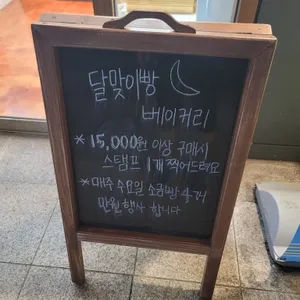 달맞이빵
베이커리
* 15,000원 이상 구매시
스탬프 1개 찍어드려요
* 매주 수요일 소금빵 4개
만원행사 합니다